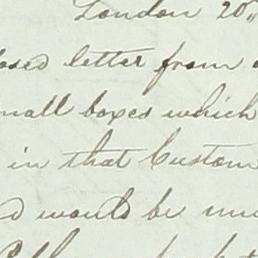 London 20"
letter from
small boxes which
in that Custom
would be